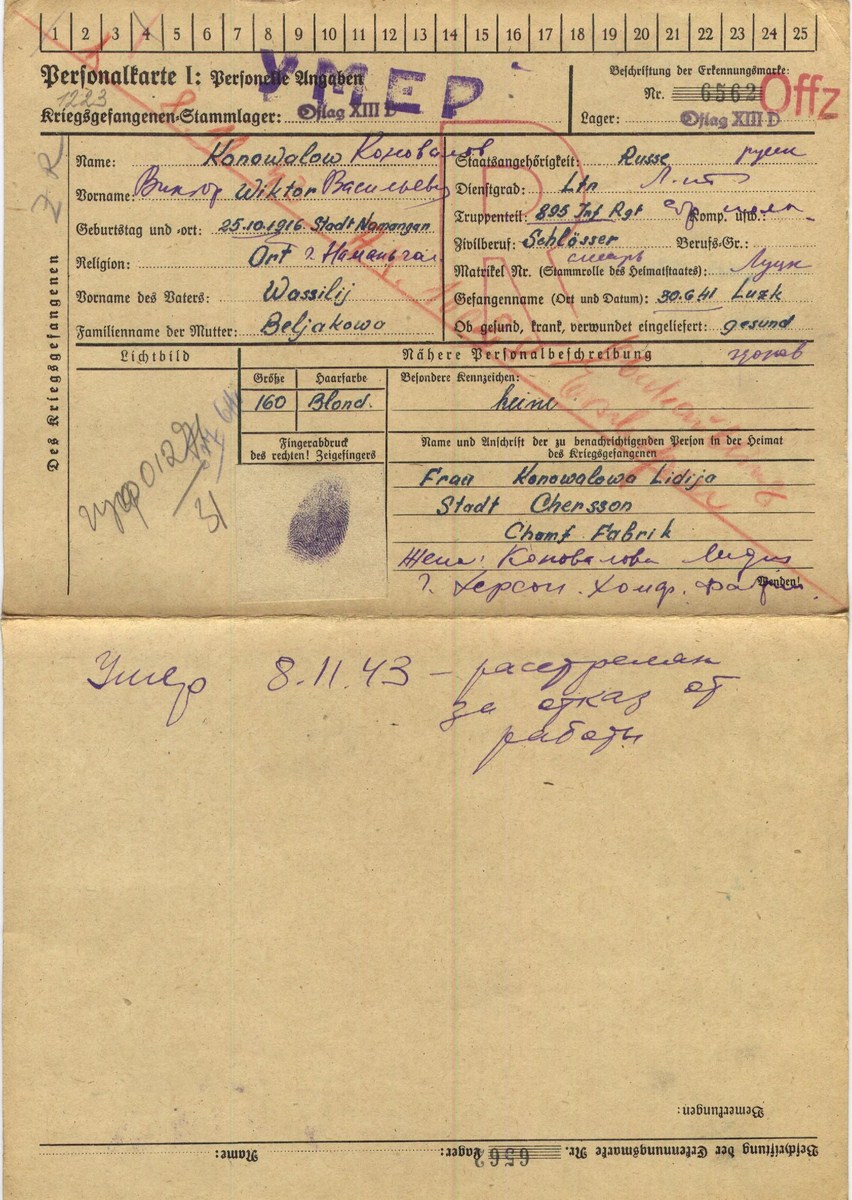 1 2 3 4 5 6 7 8 9 10 11 12 13 14 15 16 17 18 19 20 21 22 23 24 25
Personalkarte I: Personelle Angaben
УМЕР
1223
Kriegsgefangenen-Stammlager: Oflag XIII D
Beschriftung der Erkennungsmarke:
Nr. 6562 Offz
Lager: Oflag XIII D
Des Kriegsgefangenen
Name: Konowalow Коновалов
Vorname: Виктор Wiktor Васильевич
Geburtstag und -ort: 25.10.1916. Stadt Namangan
Religion: Ort г. Наманган
Vorname des Vaters: Wassilij
Familienname der Mutter: Beljakowa
Staatsangehörigkeit: Russe русск
Dienstgrad: Ltn Л-нт
Truppenteil: 895 Inf Rgt Komp. usw.:
Zivilberuf: Schlösser Berufs-Gr.:
слесарь
Matrikel Nr. (Stammrolle des Heimatstaates): Луцк
Gefangenname (Ort und Datum): 30.6.41 Luzk
Ob gesund, krank, verwundet eingeliefert: gesund
здоров
Lichtbild
Nähere Personalbeschreibung
Größe Haarfarbe Besondere Kennzeichen:
160 Blond. keine
Fingerabdruck
des rechten! Zeigefingers
Name und Anschrift der zu benachrichtigenden Person in der Heimat
des Kriegsgefangenen
Frau Konowalowa Lidija
Stadt Chersson
Chomf. Fabrik
Жена: Коновалова Лидия
Wenden!
г. Херсон.
Умер 8.11.43 – расстрелян
за отказ от
работы
Bemerkungen:
Beschriftung der Erkennungsmarke Nr. 6562 Lager: Name: